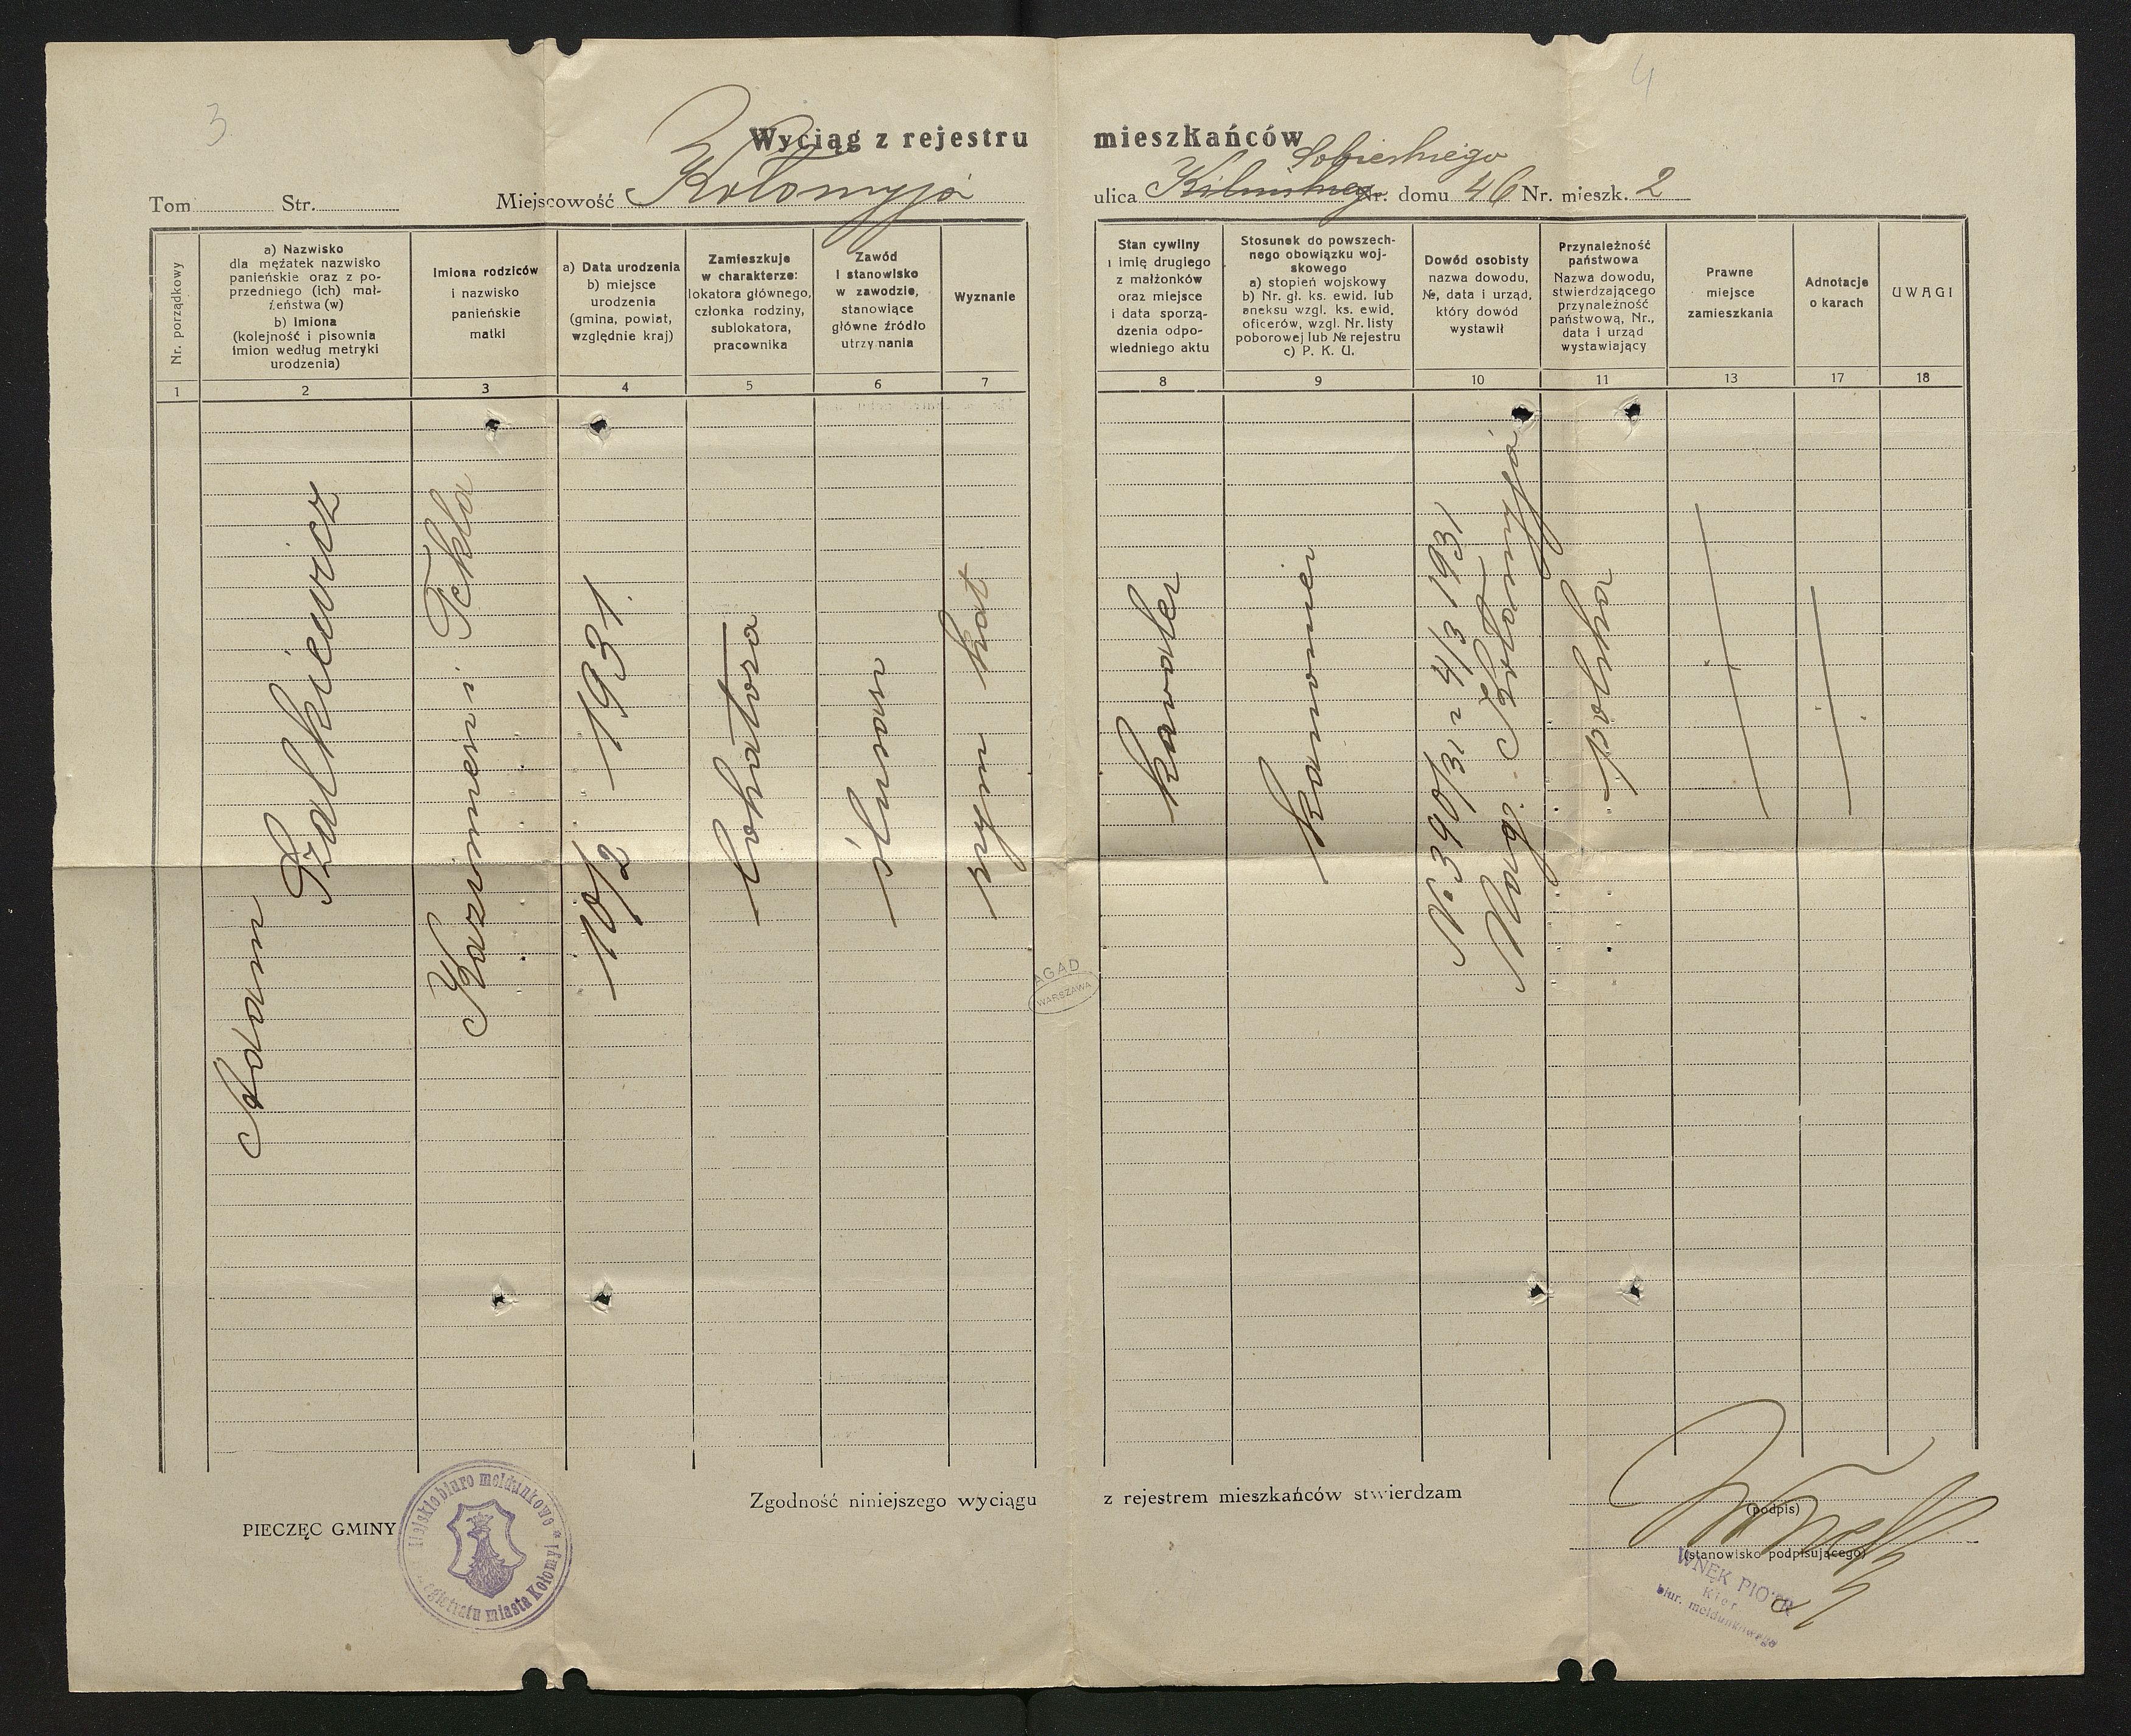 3
4
Wyciąg z rejestru mieszkańców
Tom Str. Miejscowość Kołomyja ulica Kilińskiego Sobieskiego Nr. domu 46 Nr. mieszk. 2
Nr. porządkowy
a) Nazwisko
dla mężatek nazwisko
panieńskie oraz z po-
przedniego (ich) mał-
żeństwa (w)
b) Imiona
(kolejność i pisownia
imion według metryki
urodzenia)
Imiona rodziców
i nazwisko
panieńskie
matki
a) Data urodzenia
b) miejsce
urodzenia
(gmina, powiat,
względnie kraj)
Zamieszkuje
w charakterze:
lokatora głównego,
członka rodziny,
sublokatora,
pracownika
Zawód
i stanowisko
w zawodzie,
stanowiące
główne źródło
utrzymania
Wyznanie
Stan cywilny
i imię drugiego
z małżonków
oraz miejsce
i data sporzą-
dzenia odpo-
wiedniego aktu
Stosunek do powszech-
nego obowiązku woj-
skowego
a) stopień wojskowy
b) Nr. gł. ks. ewid. lub
aneksu wzgl. ks. ewid.
oficerów, wzgl. Nr. listy
poborowej lub № rejestru
c) P. K. U.
Dowód osobisty
nazwa dowodu,
№, data i urząd,
który dowód
wystawił
Przynależność
państwowa
Nazwa dowodu,
stwierdzającego
przynależność
państwową, Nr.,
data i urząd
wystawiający
Prawne
miejsce
zamieszkania
Adnotacje
o karach
UWAGI
1 2 3 4 5 6 7 8 9 10 11 13 17 18
Adam
Kazimierz i Tekla
10/2 1931.
lokatora
ślusarz
rzym kat
kawaler
kanonier
N. 390/31 z 4/3 1931
Mag. Kołomyja
polska
AGAD
WARSZAWA
Zgodność niniejszego wyciągu z rejestrem mieszkańców stwierdzam
PIECZĘC GMINY
Miejskie biuro meldunkowe
Magistratu miasta Kołomyi
(podpis)
(stanowisko podpisującego)
WNĘK PIOTR
Kier.
biur. meldunkowego